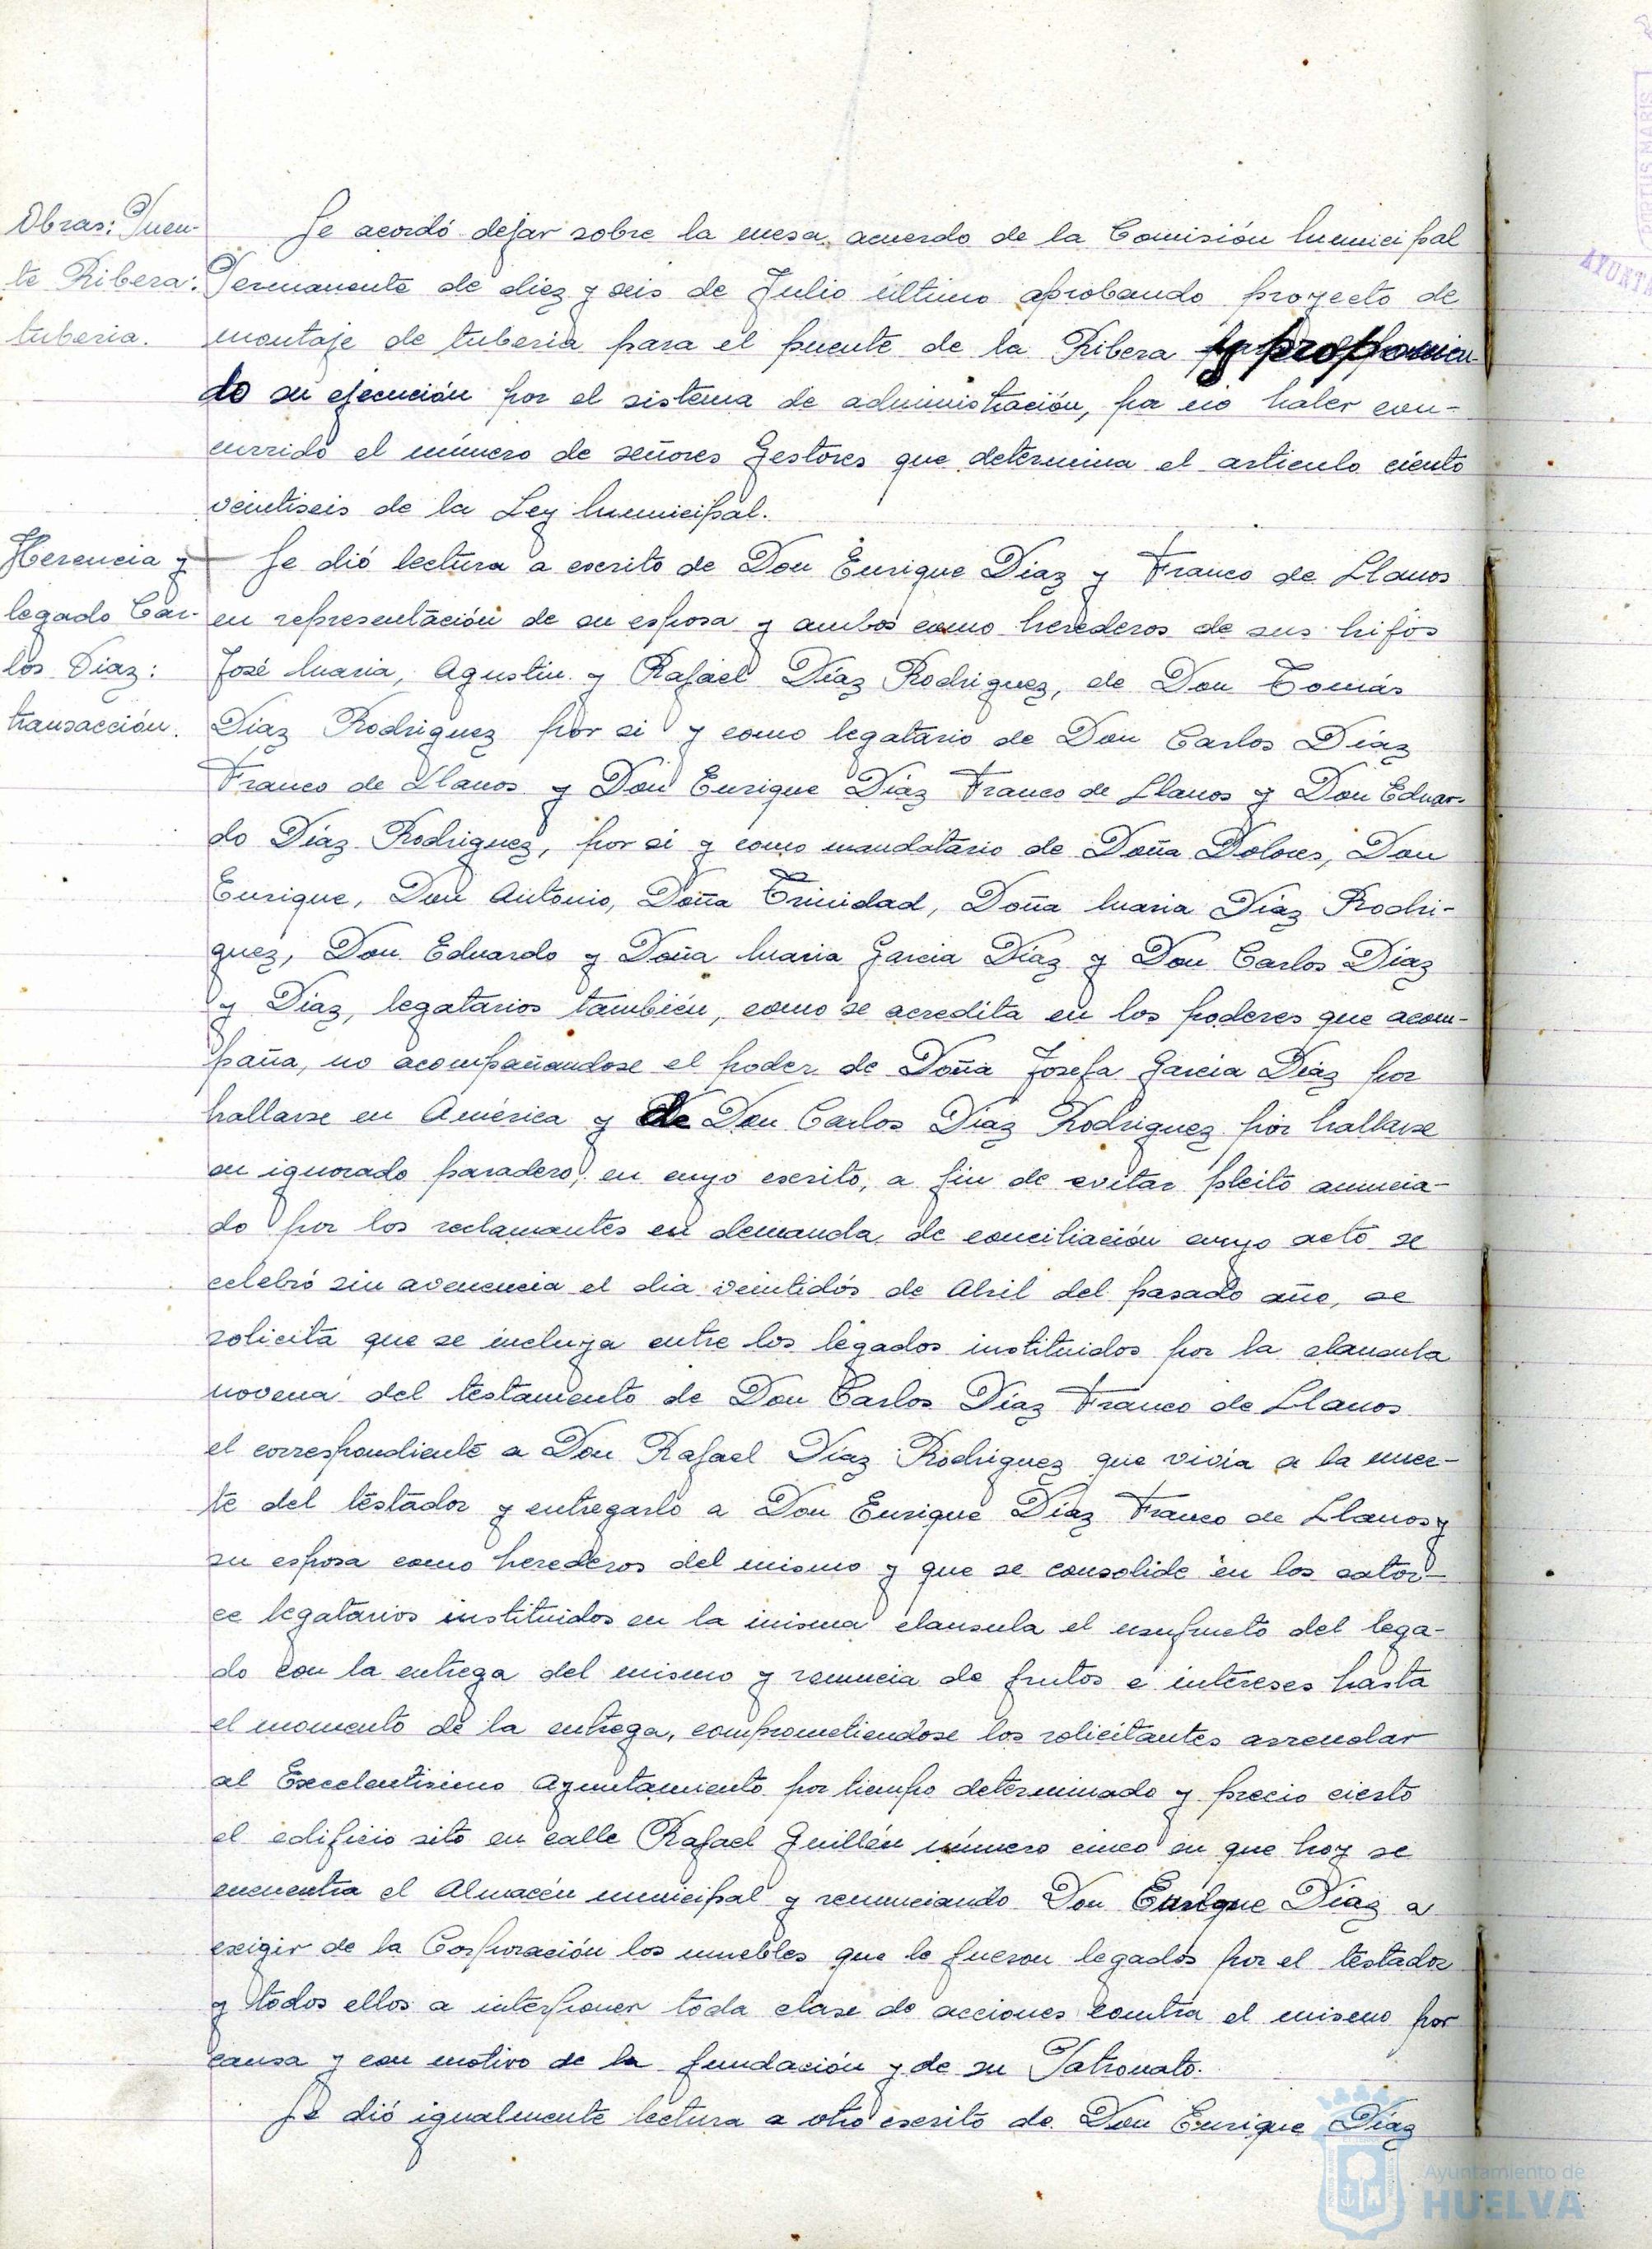 Obras: Puen-
te Ribera:
tuberia.
Se acordó dejar sobre la mesa acuerdo de la Comisión Municipal
Permanente de diez y seis de Julio último aprobando proyecto de
montaje de tuberia para el puente de la Ribera y proponien-
do su ejecución por el sistema de administración, por no haber con-
currido el número de señores Gestores que determina el articulo ciento
veintiseis de la Ley Municipal.
Herencia y
legado Car-
los Diaz:
transacción.
Se dió lectura a escrito de Don Enrique Díaz y Franco de Llanos
en representación de su esposa y ambos como herederos de sus hijos
José Maria, Agustin y Rafael Díaz Rodriguez, de Don Tomás
Diaz Rodriguez por si y como legatario de Don Carlos Díaz
Franco de Llanos y Don Enrique Díaz Franco de Llanos y Don Eduar-
do Díaz Rodriguez, por si y como mandatario de Doña Dolores, Don
Enrique, Don Antonio, Doña Trinidad, Doña Maria Díaz Rodri-
guez, Don Eduardo y Doña Maria Garcia Díaz y Don Carlos Díaz
y Diaz, legatarios también, como se acredita en los poderes que acom-
paña, no acompañandose el poder de Doña Josefa Garcia Diaz por
hallarse en América y de Don Carlos Díaz Rodriguez por hallarse
en ignorado paradero, en cuyo escrito, a fin de evitar pleito anuncia-
do por los reclamantes en demanda de conciliación cuyo acto se
celebró sin avenencia el dia veintidós de Abril del pasado año, se
solicita que se incluya entre los legados instituidos por la clausula
novena del testamento de Don Carlos Díaz Franco de Llanos
el correspondiente a Don Rafael Díaz Rodriguez que vivia a la muer-
te del testador y entregarlo a Don Enrique Díaz Franco de Llanos y
su esposa como herederos del mismo y que se consolide en los cator-
ce legatarios instituidos en la misma clausula el usufructo del lega-
do con la entrega del mismo y renuncia de frutos e intereses hasta
el momento de la entrega, comprometiendose los solicitantes arrendar
al Excelentisimo Ayuntamiento por tiempo determinado y precio cierto
el edificio sito en calle Rafael Guillén número cinco en que hoy se
encuentra el Almacén municipal y renunciando Don Enrique Díaz a
exigir de la Corporación los muebles que le fueron legados por el testador
y todos ellos a interponer toda clase de acciones contra el mismo por
causa y con motivo de la fundación y de su Patronato.
Se dió igualmente lectura a otro escrito de Don Enrique Díaz
Ayuntamiento de
HUELVA